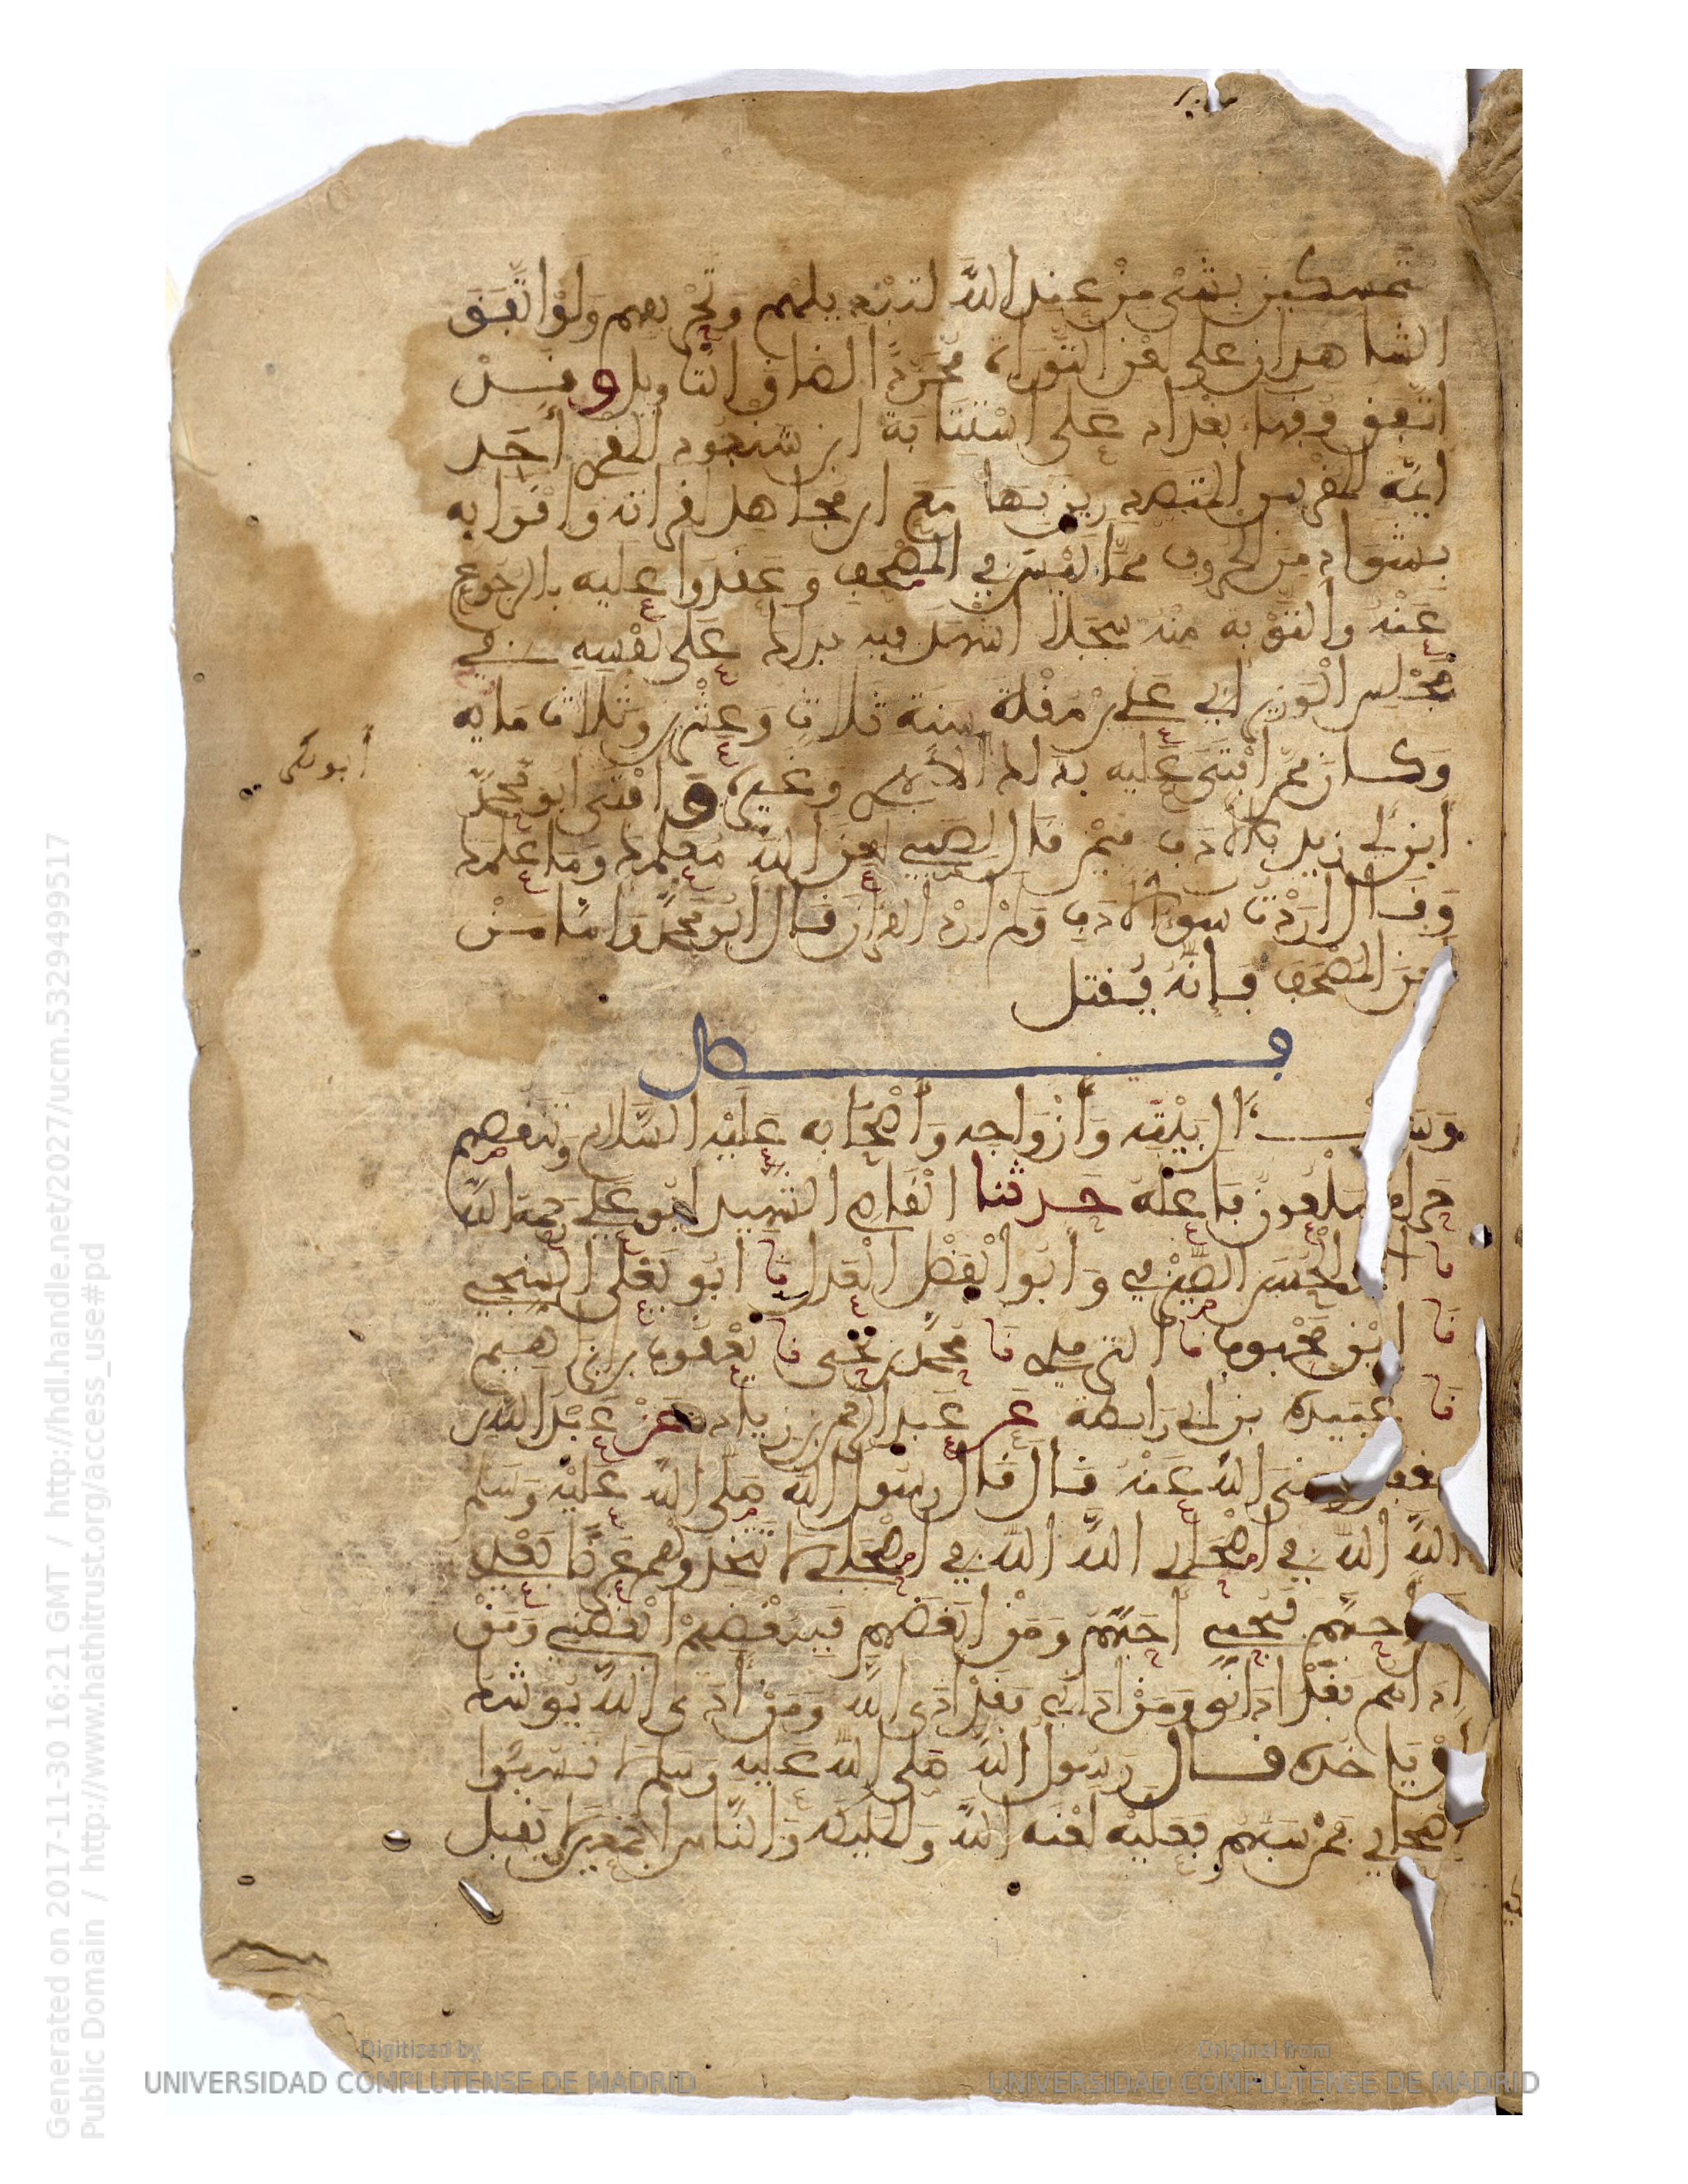 تمسكين بشيء من عند الله لتبديلهم وتحريفهم ولو اتفق
الشاهدان على لعن التوراة مجردا لضاق التأويل وقد
اتفق فقهاء بغداد على استتابة ابن شنبوذ المقرئ أحد
ايمة المقرئين المتصدرين بها مع ابن مجاهد لقراته واقرايه
بشواذ من الحروف مما ليس في المصحف وعقدوا عليه بالرجوع
عنه والتوبة منه سجلا اشهد فيه بذلك على نفسه في
مجلس الوزير أبي علي بن مقلة سنة ثلاث وعشرين وثلاث ماية
وكان ممن افتى عليه بذلك الأبهري وغيره وافتى ابو محمد
أبوبكر
ابن أبي زيد بالأدب فيمن قال لصبي لعن الله معلمك وما علمك
وقال اردت سوء الأدب ولم ارد القرآن قال ابو محمد واما من
لعن المصحف فإنه يقتل
فصل
وسب آل بيته وأزواجه وأصحابه عليه السلام وتنقصهم
حرام ملعون فاعله حدثنا القاضي الشهيد ابو علي رحمه الله
نا ابو الحسين الصيرفي وابو الفضل العدل نا ابو يعلى السنجي
نا ابن محبوب نا الترمذي نا محمد بن يحيى نا يعقوب بن ابراهيم
نا عبيدة بن أبي رايطة عن عبد الرحمن بن زياد عن عبد الله بن
مغفل رضي الله عنه قال قال رسول الله صلى الله عليه وسلم
الله الله في أصحابي الله الله في أصحابي لا تتخذوهم غرضا بعدي
فمن أحبهم فبحبي أحبهم ومن ابغضهم فببغضي ابغضهم ومن
اذاهم فقد اذاني ومن اذاني فقد اذى الله ومن اذى الله يوشك
أن ياخذه وقال رسول الله صلى الله عليه وسلم لا تسبوا
أصحابي فمن سبهم فعليه لعنة الله والمليكة والناس اجمعين لا يقبل